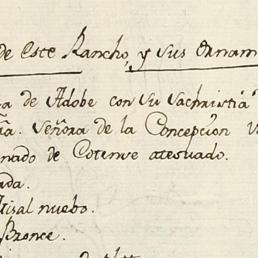 de este Rancho, y sus Ornam
a de Adobe con su Sachristia
ña. Señora de la Concepcion
nado de Cotense atesuado.
ada.
tisal nuebo.
Bronce.